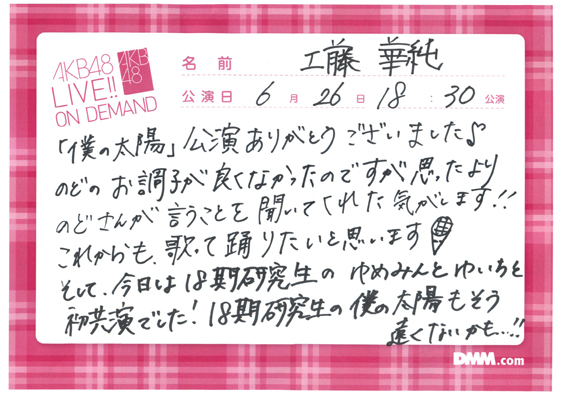 AKB48
LIVE!!
ON DEMAND
AKB
48
名前 工藤 華純
公演日 6月26日 18:30公演
「僕の太陽」公演ありがとうございました♪
のどのお調子が良くなかったのですが思ったより
のどさんが言うことを聞いてくれた気がします!!
これからも、歌って踊りたいと思います!
そして、今日は18期研究生のゆめみんとゆいちと
初共演でした!18期研究生の僕の太陽もそう
遠くないかも...!!
DMM.com